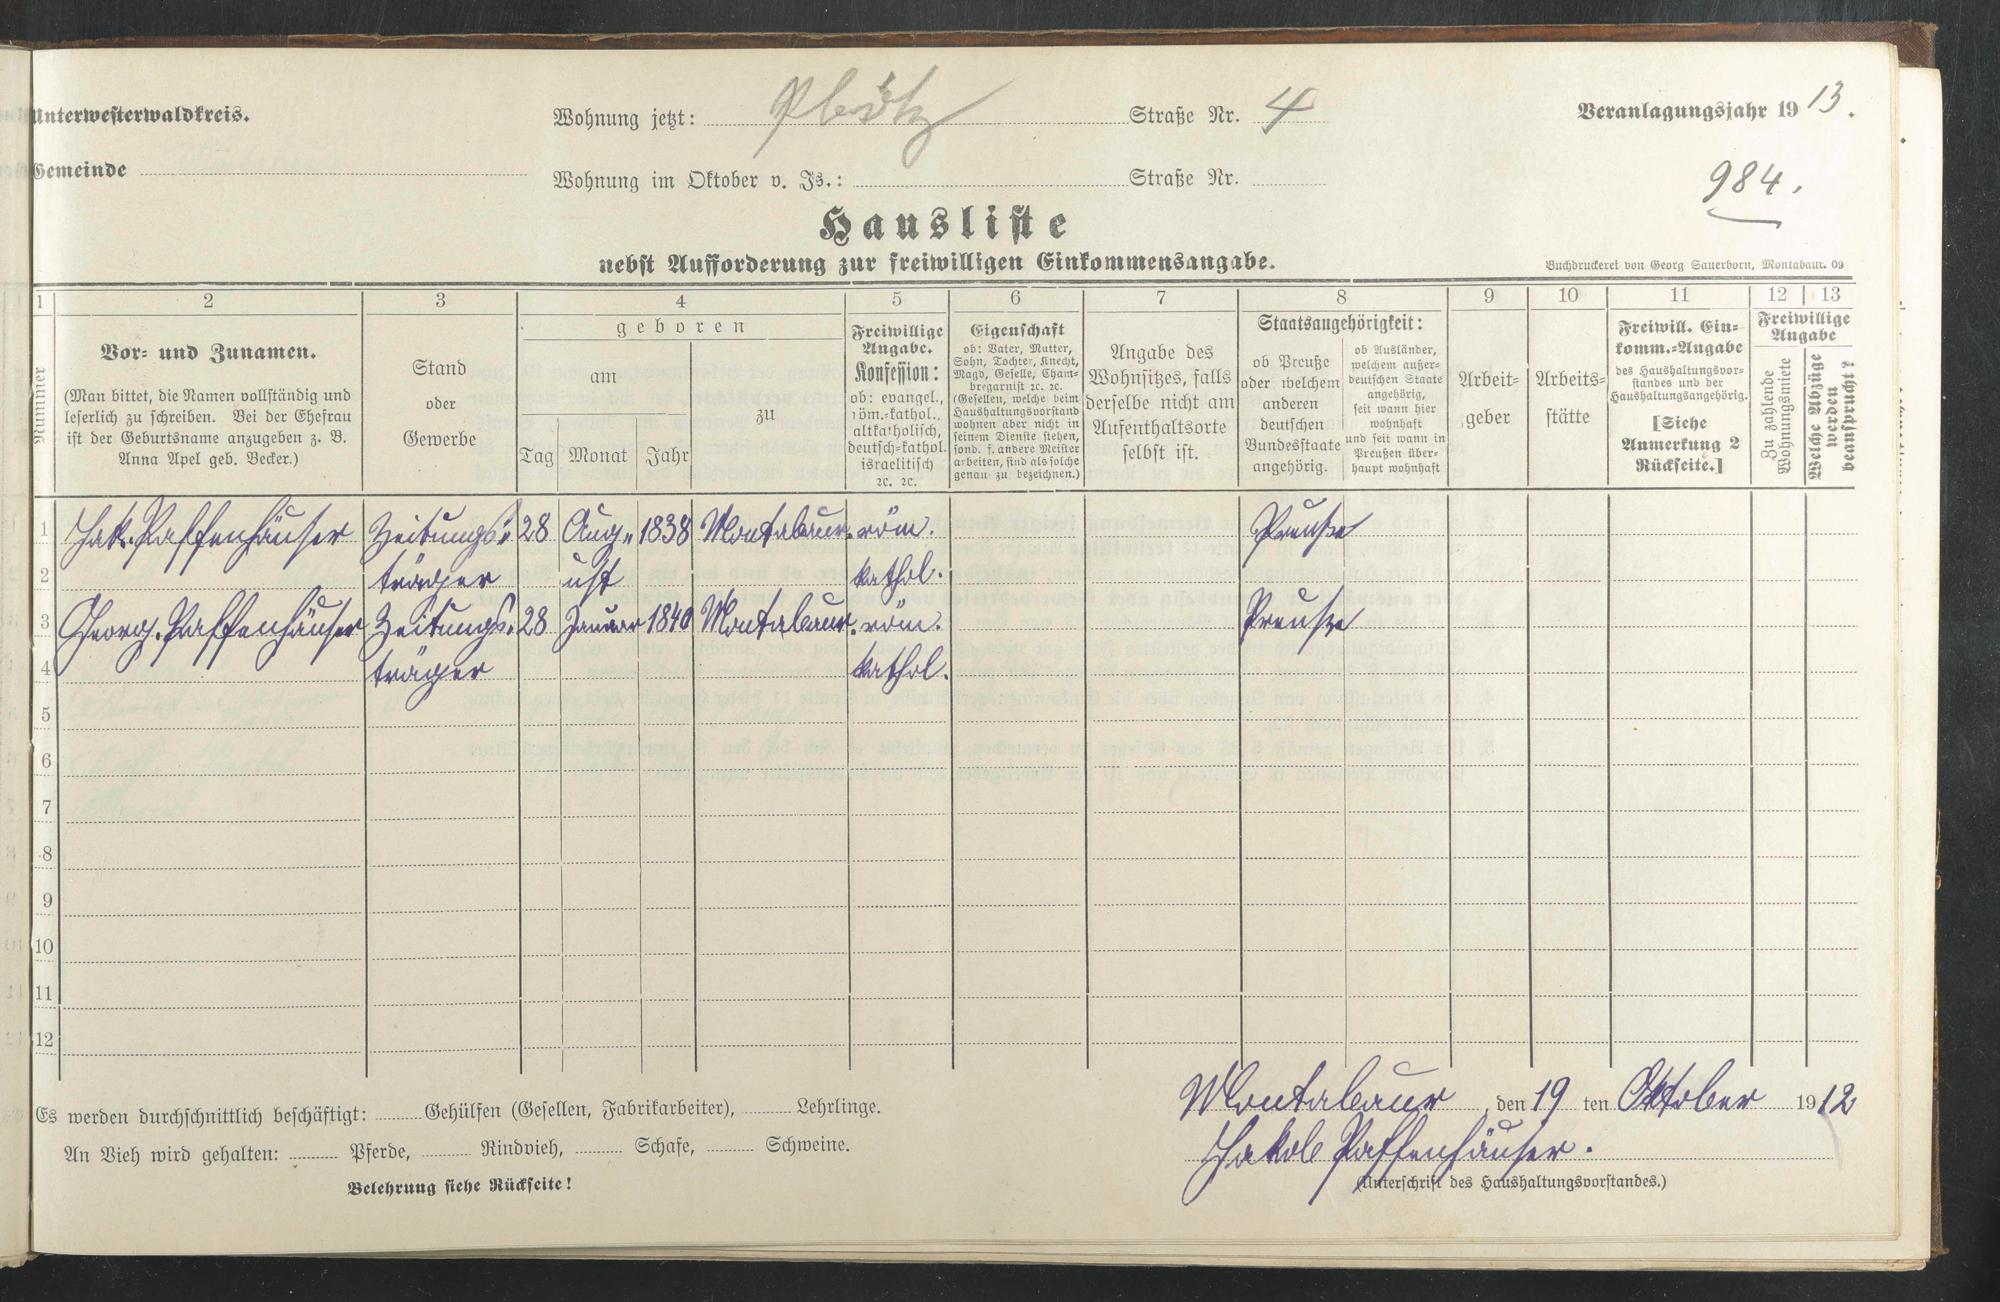 Unterwesterwaldkreis.
Wohnung jetzt: Plötz Straße Nr. 4
Veranlagungsjahr 1913.
Gemeinde
Wohnung im Oktober v. Js.: Straße Nr.
984.
Hausliste
nebst Aufforderung zur freiwilligen Einkommensangabe.
Buchdruckerei von Georg Sauerborn, Montabaur. 09
1 2 3 4 5 6 7 8 9 10 11 12 13
Nummer
Vor- und Zunamen.
(Man bittet, die Namen vollständig und
leserlich zu schreiben. Bei der Ehefrau
ist der Geburtsname anzugeben z. B.
Anna Apel geb. Becker.)
Stand
oder
Gewerbe
geboren
am
Tag Monat Jahr
zu
Freiwillige
Angabe.
Konfession:
ob: evangel.,
röm.-kathol.,
altkatholisch,
deutsch-kathol.
israelitisch
2c. 2c.
Eigenschaft
ob: Vater, Mutter,
Sohn, Tochter, Knecht,
Magd, Geselle, Cham-
bregarnist 2c. 2c.
(Gesellen, welche beim
Haushaltungsvorstand
wohnen aber nicht in
seinem Dienste stehen,
sond. f. andere Meister
arbeiten, sind als solche
genau zu bezeichnen.)
Angabe des
Wohnsitzes, falls
derselbe nicht am
Aufenthaltsorte
selbst ist.
Staatsangehörigkeit:
ob Preuße
oder welchem
anderen
deutschen
Bundesstaate
angehörig.
ob Ausländer,
welchem außer-
deutschen Staate
angehörig,
seit wann hier
wohnhaft
und seit wann in
Preußen über-
haupt wohnhaft
Arbeit-
geber
Arbeits-
stätte
Freiwill. Ein-
komm.-Angabe
des Haushaltungsvor-
standes und der
Haushaltungsangehörig.
[Siehe
Anmerkung 2
Rückseite.]
Freiwillige
Angabe
Zu zahlende
Wohnungsmiete
Welche Abzüge
werden
beansprucht?
1 Jak. Paffenhäuser Zeitungs- 28 Aug- 1838 Montabaur. röm. Preuße
2 träger ust kathol.
3 Georg. Paffenhäuser Zeitungs- 28 Januar 1840 Montabaur. röm. Preuße
4 träger kathol.
5
6
7
8
9
10
11
12
Es werden durchschnittlich beschäftigt: Gehülfen (Gesellen, Fabrikarbeiter), Lehrlinge.
An Vieh wird gehalten: Pferde, Rindvieh, Schafe, Schweine.
Belehrung siehe Rückseite!
Montabaur, den 19 ten Oktober 1912
Jakob Paffenhäuser.
(Unterschrift des Haushaltungsvorstandes.)